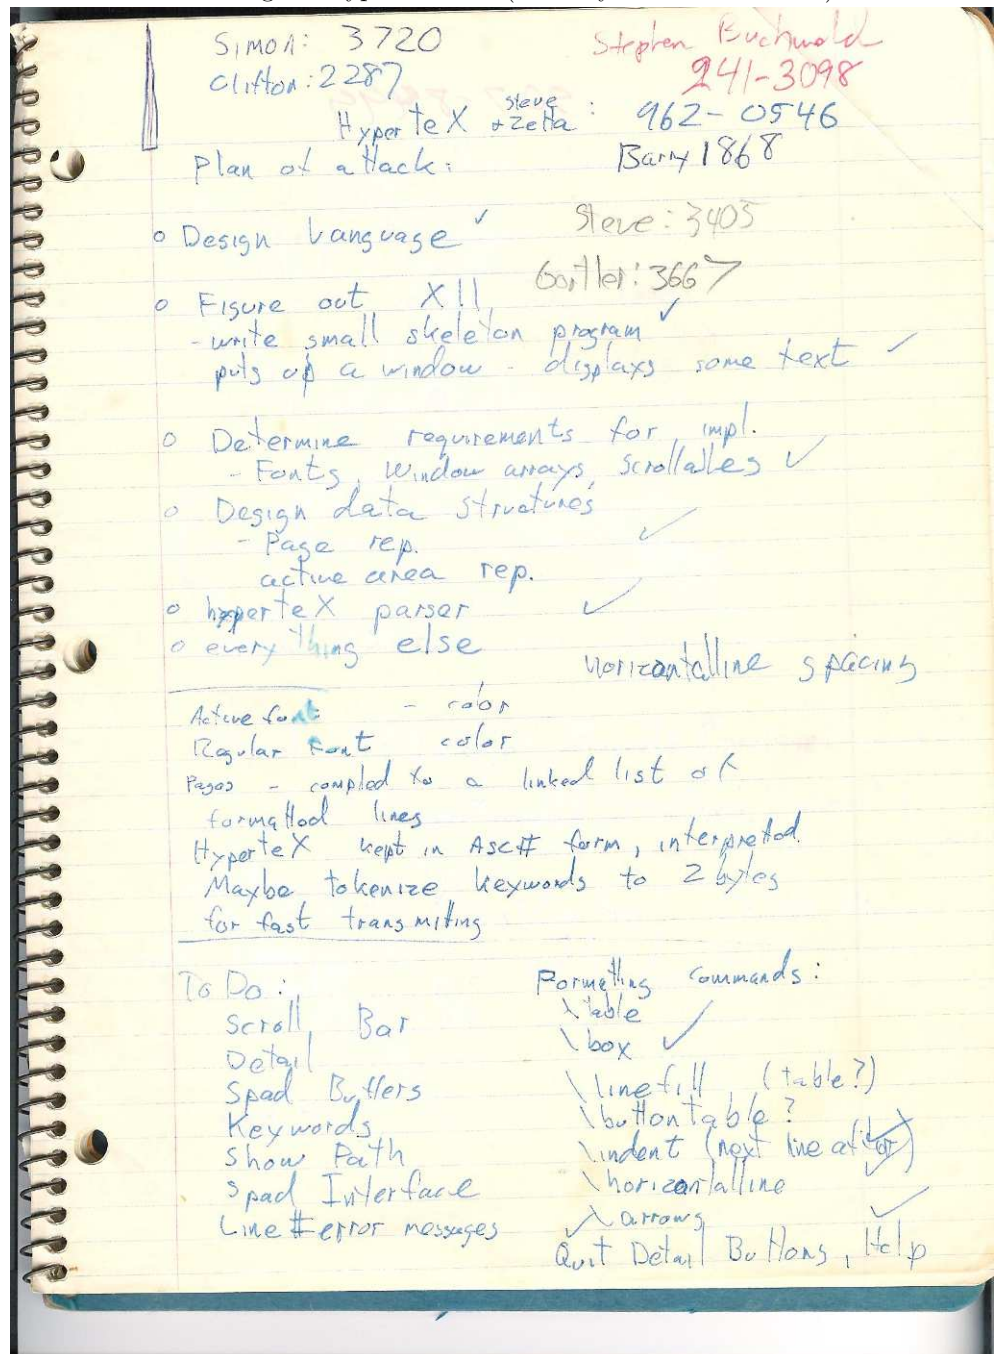 Simon: 3720
Stephen Buchwald
Clifton: 2287
241-3098
HyperteX steve + Zetta : 962-0546
Plan of attack:
Barry 1868
Steve: 3405
o Design Language ✓
Gortler: 3667
o Figure out X11
- write small skeleton program ✓
puts up a window - displays some text ✓
o Determine requirements for impl.
- Fonts, Window arrays, scrollables ✓
o Design data structures
- Page rep. ✓
active area rep.
o hyperteX parser ✓
o everything else
horizontalline spacing
Active font - color
Regular Font color
Pages - compled to a linked list of
formatted lines
HyperteX kept in ASCII form, interpreted.
Maybe tokenize keywords to 2 bytes
for fast transmiting
To Do:
Scroll Bar
Detail
Spad Buffers
Keywords
Show Path
Spad Interface
Line # error messages
Formatting commands:
\table
\box ✓
\linefill (table?)
\buttontable?
\indent (next line at
\horizontalline ✓
✓ \arrows
Quit Detail Buttons, Help ✓